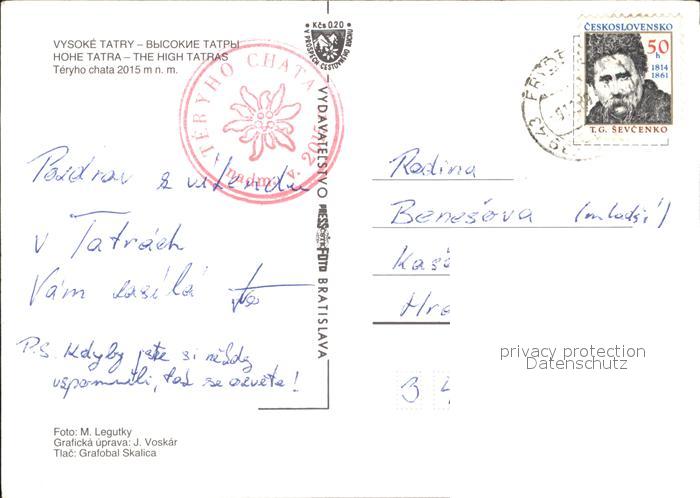 VYSOKÉ TATRY – ВЫСОКИЕ ТАТРЫ
HOHE TATRA – THE HIGH TATRAS
Téryho chata 2015 m n. m.
Kčs 0,20
TÉRYHO CHATA
nadm. v. 20
ČESKOSLOVENSKO
50
h
1814
1861
T. G. ŠEVČENKO
VYDAVATEĽSTVO PRESSFOTO BRATISLAVA
Pozdrav z víkendu
v Tatrách
Vám zasílá
P.S. Kdyby jste si někdy
vzpomněli, tak se ozvěte!
Rodina
Benešova (mladší)
Kaš
Hra
3 4
privacy protection
Datenschutz
Foto: M. Legutky
Grafická úprava: J. Voskár
Tlač: Grafobal Skalica